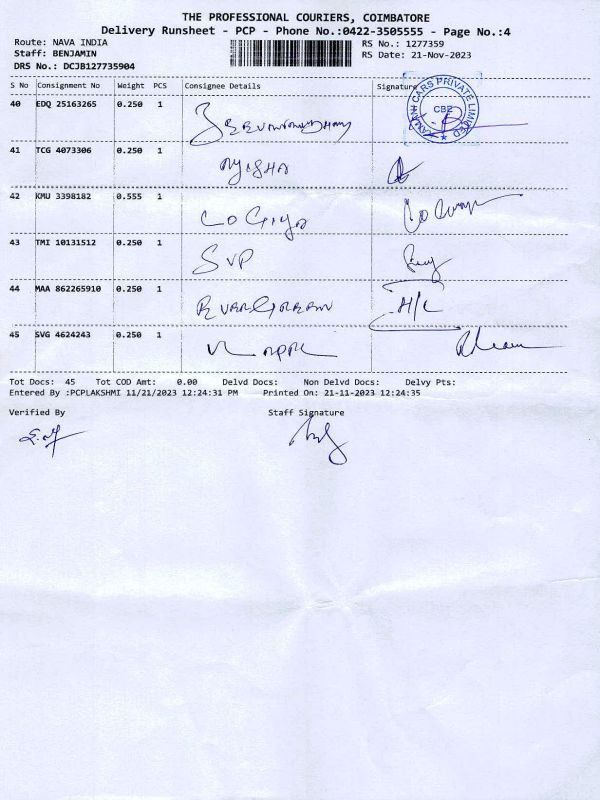 THE PROFESSIONAL COURIERS, COIMBATORE
Delivery Runsheet - PCP - Phone No.:0422-3505555 - Page No.:4
Route: NAVA INDIA RS No.: 1277359
Staff: BENJAMIN RS Date: 21-Nov-2023
DRS No.: DCJB127735904
S No Consignment No Weight PCS Consignee Details Signature
40 EDQ 25163265 0.250 1
CARS PRIVATE LIMITED
CBE
41 TCG 4073306 0.250 1
42 KMU 3398182 0.555 1
43 TMI 10131512 0.250 1 SVP
44 MAA 862265910 0.250 1
45 SVG 4624243 0.250 1
Tot Docs: 45 Tot COD Amt: 0.00 Delvd Docs: Non Delvd Docs: Delvy Pts:
Entered By :PCPLAKSHMI 11/21/2023 12:24:31 PM Printed On: 21-11-2023 12:24:35
Verified By Staff Signature